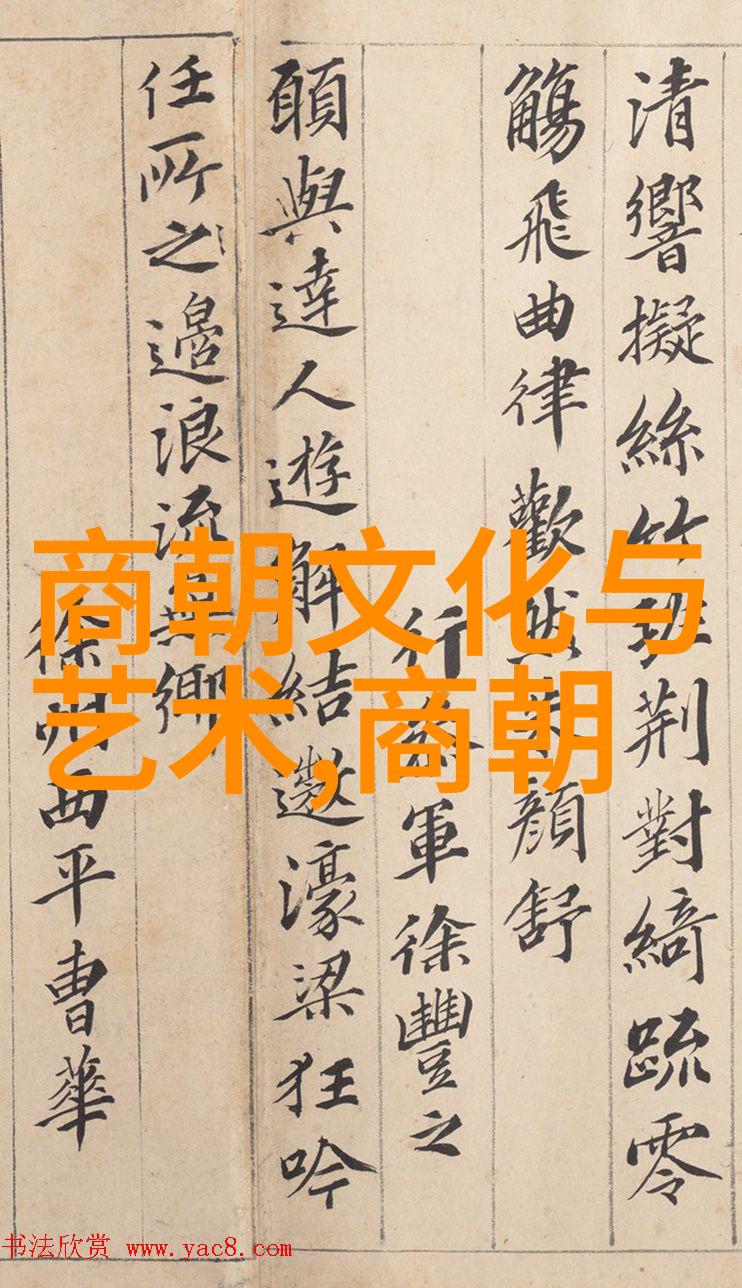 清響擬絲竹班荊對綺疏零
觴飛曲律歡然朱顏舒
行參軍徐豐之
願與達人遊解結遨濠梁狂吟
任所之邊浪流無鄉
徐州西平曹華
商朝文化与
艺术,商朝
书法欣赏 www.yac8.com